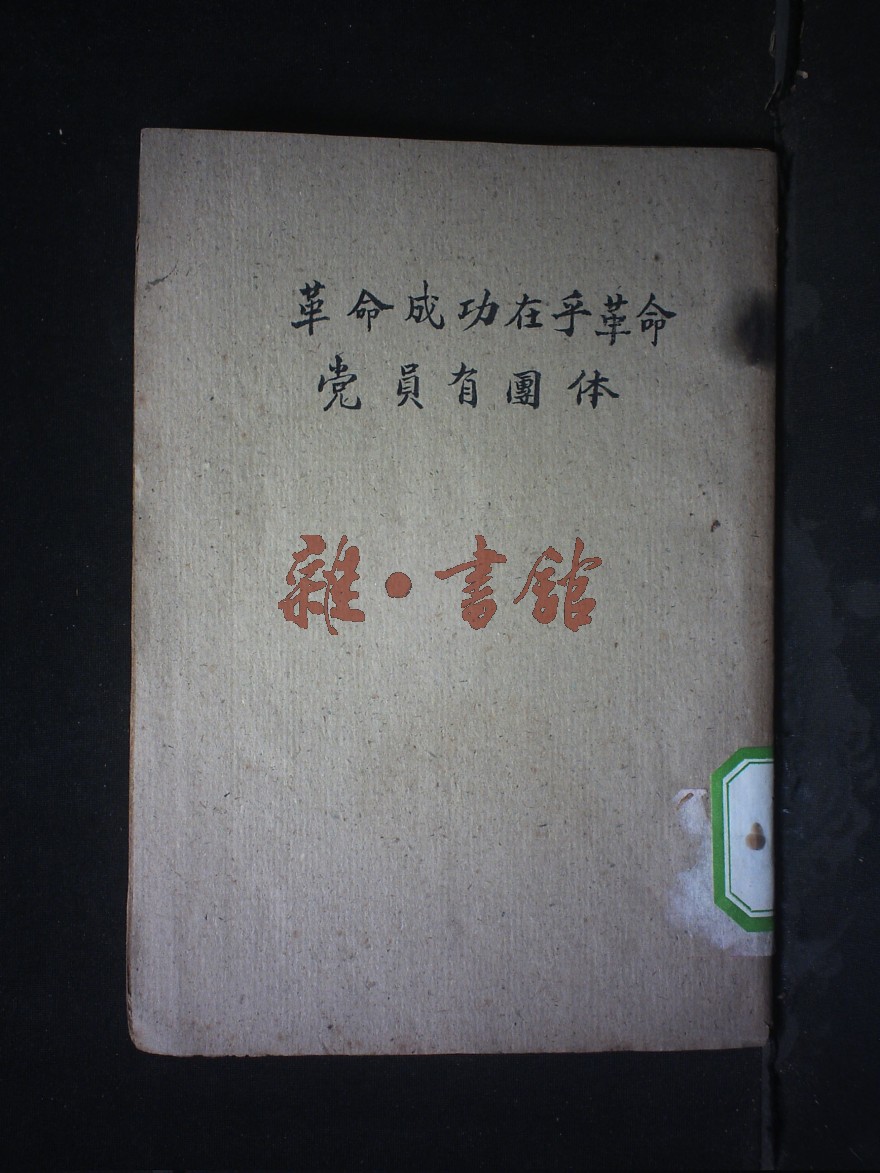 革命成功在乎革命
党員有團体
雜·書館